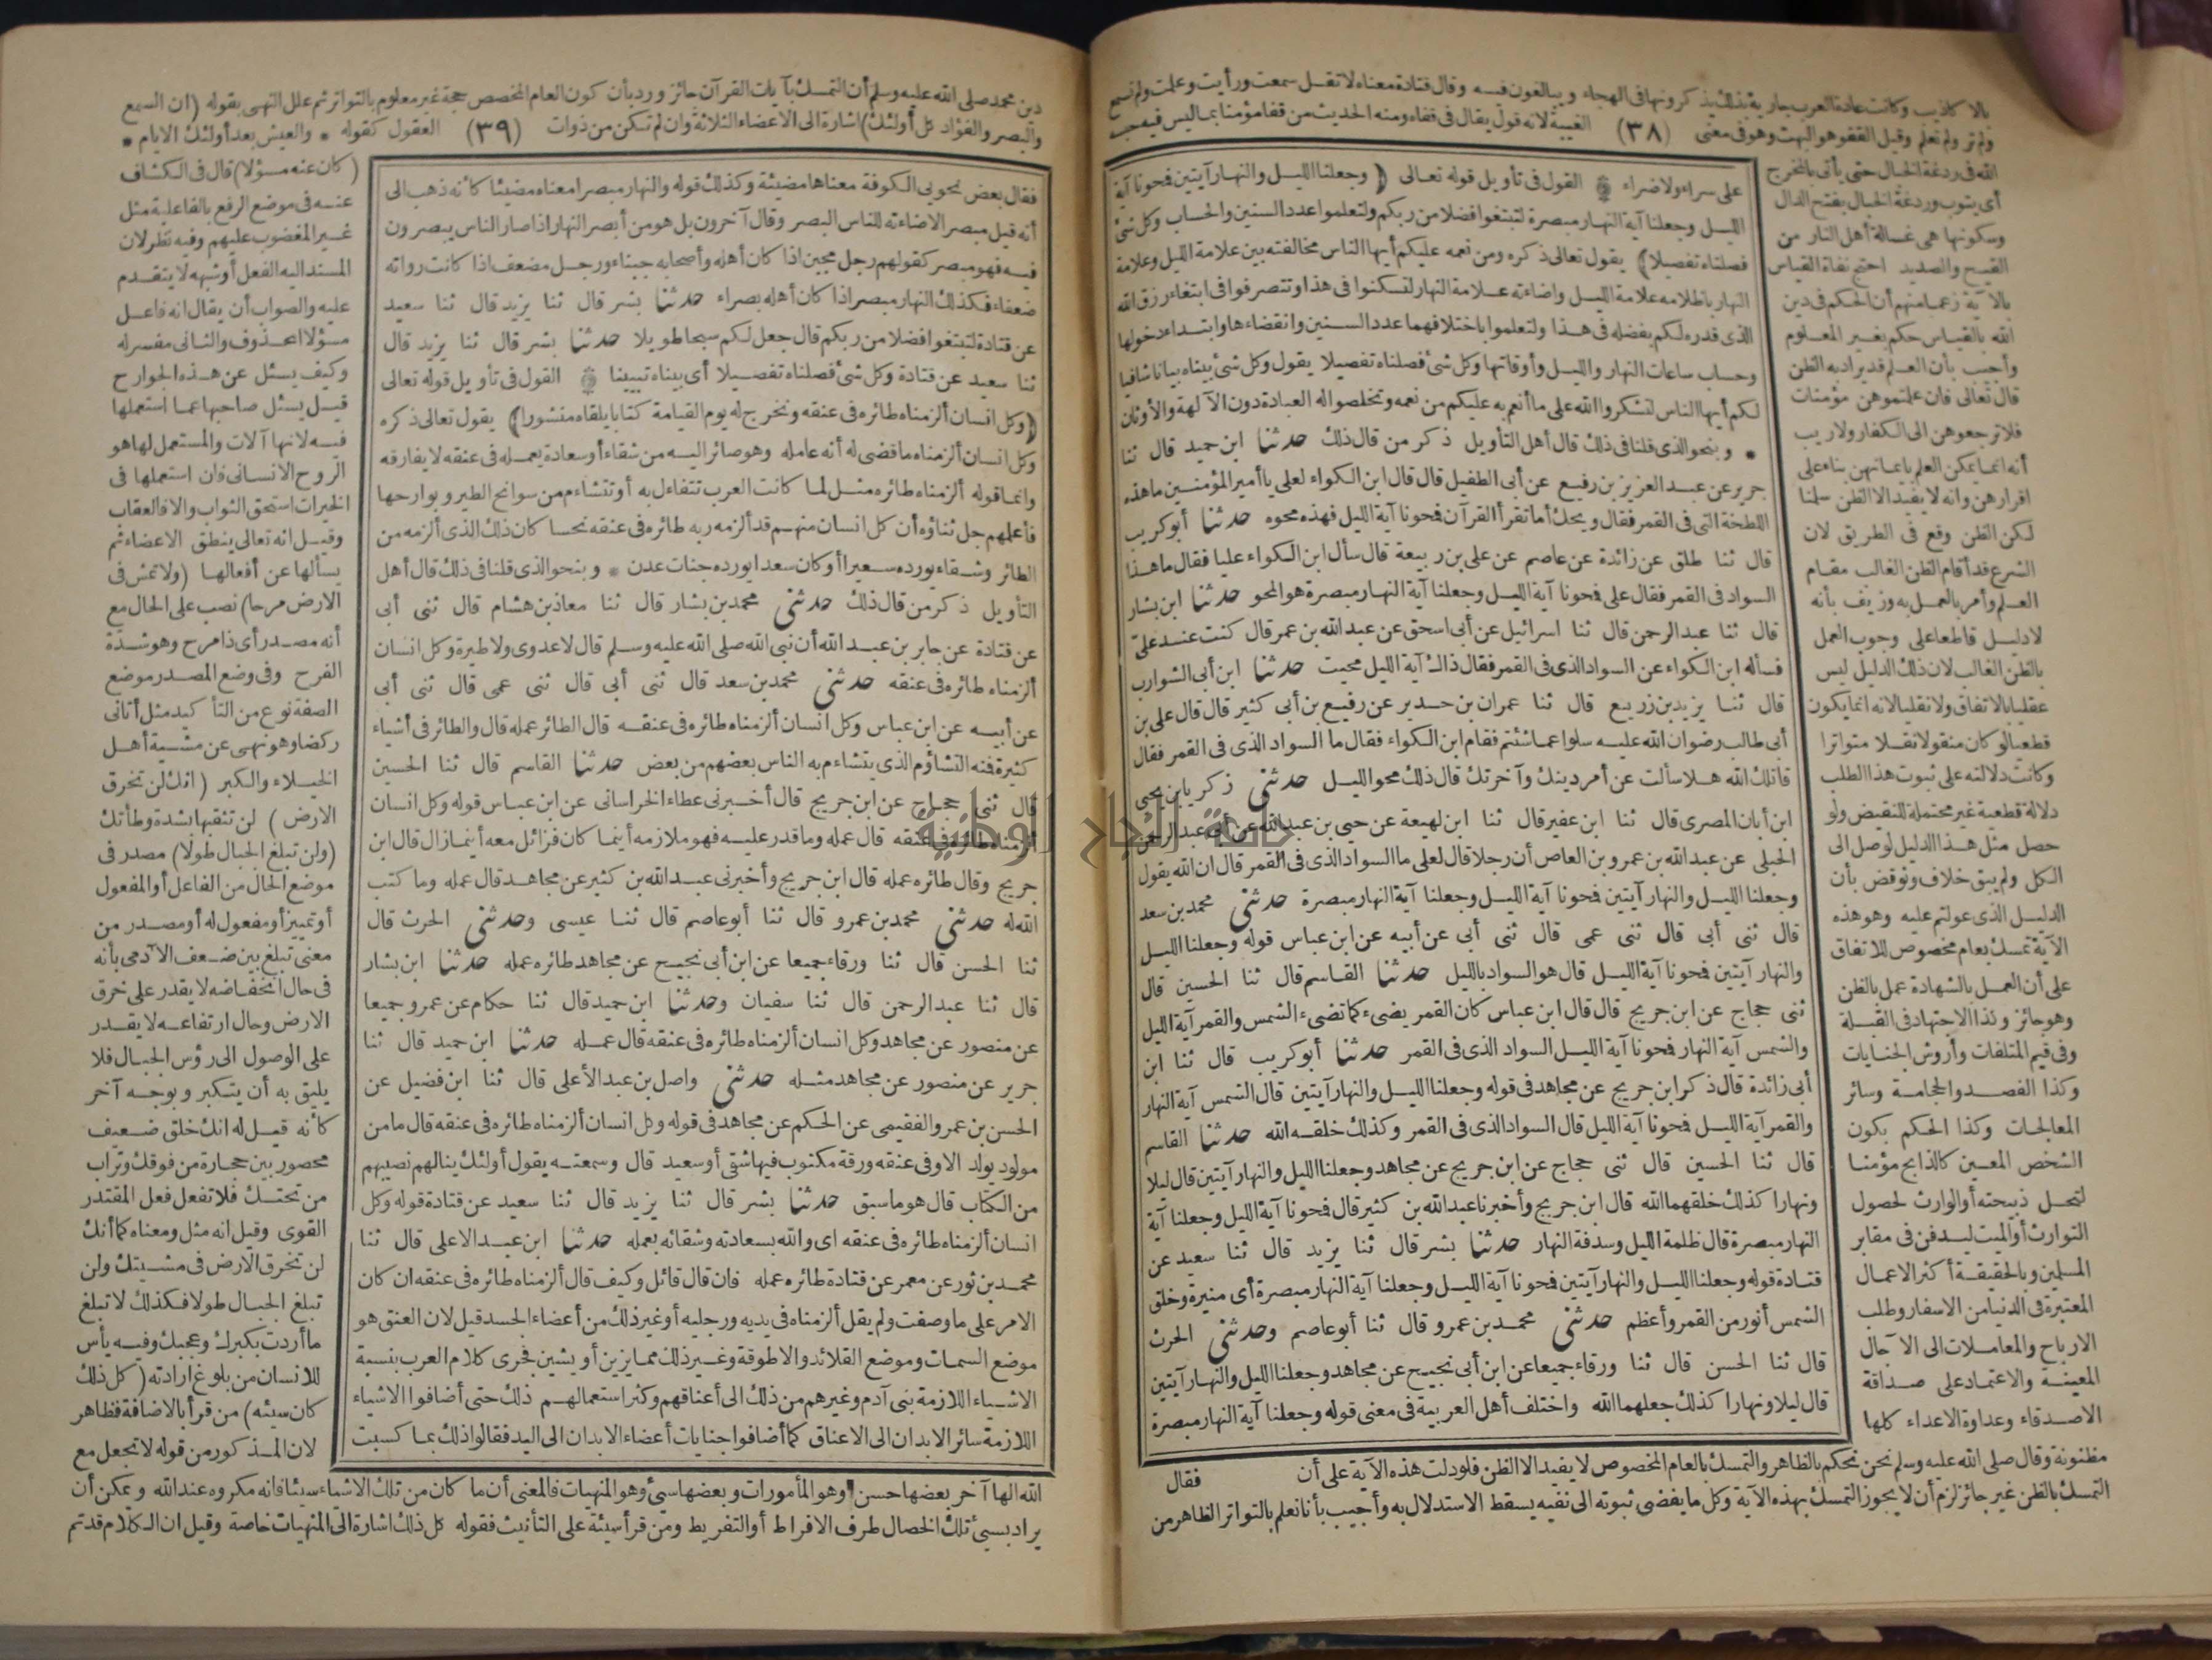 بالا كاذيب وكانت عادة العرب جارية بذلك يذكرونها فى الهجاء ويبالغون فيه وقال قتادة معناه لا تقل سمعت ورأيت وعلمت ولم تسمع
ولم تر ولم تعلم وقيل القفو هو البهت وهو فى معنى (٣٨) الغيبة لانه قول يقال فى قفاه ومنه الحديث من قفا مؤمنا بما ليس فيه حبسه
على سراء ولا ضراء ۞ القول فى تأويل قوله تعالى ﴿ وجعلنا الليل والنهار آيتين فمحونا آية
الليل وجعلنا آية النهار مبصرة لتبتغوا فضلا من ربكم ولتعلموا عدد السنين والحساب وكل شئ
فصلناه تفصيلا﴾ يقول تعالى ذكره ومن نعمه عليكم أيها الناس مخالفته بين علامة الليل وعلامة
النهار باظلامه علامة الليل واضاءته علامة النهار لتسكنوا فى هذا وتتصرفوا فى ابتغاء رزق الله
الذى قدره لكم بفضله فى هذا ولتعلموا باختلافهما عدد السنين وانقضاءها وابتداء دخولها
وحساب ساعات النهار والليل وأوقاتها وكل شئ فصلناه تفصيلا يقول وكل شئ بيناه بيانا شافيا
لكم أيها الناس لتشكروا الله على ما أنعم به عليكم من نعمه وتخلصوا له العبادة دون الآلهة والأوثان
* وبنحو الذى قلنا فى ذلك قال أهل التأويل ذكر من قال ذلك حدثنا ابن حميد قال ثنا
جرير عن عبد العزيز بن رفيع عن أبى الطفيل قال قال ابن الكواء لعلى يا أمير المؤمنين ما هذه
اللطخة التى فى القمر فقال ويحك أما تقرأ القرآن فمحونا آية الليل فهذه محوه حدثنا أبو كريب
قال ثنا طلق عن زائدة عن عاصم عن على بن ربيعة قال سأل ابن الكواء عليا فقال ما هذا
السواد فى القمر فقال على فمحونا آية الليل وجعلنا آية النهار مبصرة هو المحو حدثنا ابن بشار
قال ثنا عبد الرحمن قال ثنا اسرائيل عن أبى اسحق عن عبد الله بن عمر قال كنت عند على
فسأله ابن الكواء عن السواد الذى فى القمر فقال ذاك آية الليل محيت حدثنا ابن أبى الشوارب
قال ثنا يزيد بن زريع قال ثنا عمران بن حدير عن رفيع بن أبى كثير قال قال على بن
أبى طالب رضوان الله عليه سلوا عما شئتم فقام ابن الكواء فقال ما السواد الذى فى القمر فقال
قاتلك الله هلا سألت عن أمر دينك وآخرتك قال ذلك محو الليل حدثنى زكريا بن يحيى
ابن أبان المصرى قال ثنا ابن عفير قال ثنا ابن لهيعة عن حيى بن عبد الله عن أبى عبد الرحمن
الحبلى عن عبد الله بن عمرو بن العاص أن رجلا قال لعلى ما السواد الذى فى القمر قال ان الله يقول
وجعلنا الليل والنهار آيتين فمحونا آية الليل وجعلنا آية النهار مبصرة حدثنى محمد بن سعد
قال ثنى أبى قال ثنى عمى قال ثنى أبى عن أبيه عن ابن عباس قوله وجعلنا الليل
والنهار آيتين فمحونا آية الليل قال هو السواد بالليل حدثنا القاسم قال ثنا الحسين قال
ثنى حجاج عن ابن جريج قال قال ابن عباس كان القمر يضىء كما تضىء الشمس والقمر آية الليل
والشمس آية النهار فمحونا آية الليل السواد الذى فى القمر حدثنا أبو كريب قال ثنا ابن
أبى زائدة قال ذكر ابن جريج عن مجاهد فى قوله وجعلنا الليل والنهار آيتين قال الشمس آية النهار
والقمر آية الليل فمحونا آية الليل قال السواد الذى فى القمر وكذلك خلقه الله حدثنا القاسم
قال ثنا الحسين قال ثنى حجاج عن ابن جريج عن مجاهد وجعلنا الليل والنهار آيتين قال ليلا
ونهارا كذلك خلقهما الله قال ابن جريج وأخبرنا عبد الله بن كثير قال فمحونا آية الليل وجعلنا آية
النهار مبصرة قال ظلمة الليل وسدفة النهار حدثنا بشر قال ثنا يزيد قال ثنا سعيد عن
قتادة قوله وجعلنا الليل والنهار آيتين فمحونا آية الليل وجعلنا آية النهار مبصرة أى منيرة وخلق
الشمس أنور من القمر وأعظم حدثنى محمد بن عمرو قال ثنا أبو عاصم وحدثنى الحرث
قال ثنا الحسن قال ثنا ورقاء جميعا عن ابن أبى نجيح عن مجاهد وجعلنا الليل والنهار آيتين
قال ليلا ونهارا كذلك جعلهما الله واختلف أهل العربية فى معنى قوله وجعلنا آية النهار مبصرة
فقال
الله فى ردغة الخبال حتى يأتى بالمخرج
أى يتوب وردغة الخبال بفتح الدال
وسكونها هى غسالة أهل النار من
القيح والصديد احتج نفاة القياس
بالآية زعما منهم أن الحكم فى دين
الله بالقياس حكم بغير المعلوم
وأجيب بأن العلم قد يراد به الظن
قال تعالى فان علمتموهن مؤمنات
فلا ترجعوهن الى الكفار ولا ريب
أنه انما يمكن العلم بايمانهن بناء على
اقرارهن وانه لا يفيد الا الظن سلمنا
لكن الظن وقع فى الطريق لان
الشرع قد أقام الظن الغالب مقام
العلم وأمر بالعمل به وزيف بأنه
لا دليل قاطعا على وجوب العمل
بالظن الغالب لان ذلك الدليل ليس
عقليا بالاتفاق ولا نقليا لانه انما يكون
قطعيا لو كان منقولا نقلا متواترا
وكانت دلالته على ثبوت هذا الطلب
دلالة قطعية غير محتملة للنقيض ولو
حصل مثل هذا الدليل لوصل الى
الكل ولم يبق خلاف ونوقض بأن
الدليل الذى عولتم عليه وهو هذه
الآية تمسك بعام مخصوص للاتفاق
على أن العمل بالشهادة عمل بالظن
وهو جائز وكذا الاجتهاد فى القبلة
وفى قيم المتلفات وأروش الجنايات
وكذا الفصد والحجامة وسائر
المعالجات وكذا الحكم بكون
الشخص المعين كالذابح مؤمنا
لتحل ذبيحته أو الوارث لحصول
التوارث أو الميت ليدفن فى مقابر
المسلمين وبالحقيقة أكثر الاعمال
المعتبرة فى الدنيا من الاسفار وطلب
الارباح والمعاملات الى الآجال
المعينة والاعتماد على صداقة
الاصدقاء وعداوة الاعداء كلها
مظنونة وقال صلى الله عليه وسلم نحن نحكم بالظاهر والتمسك بالعام المخصوص لا يفيد الا الظن فلو دلت هذه الآية على أن
التمسك بالظن غير جائز لزم أن لا يجوز التمسك بهذه الآية وكل ما يفضى ثبوته الى نفيه يسقط الاستدلال به وأجيب بأنا نعلم بالتواتر الظاهر من
دين محمد صلى الله عليه وسلم أن التمسك بآيات القرآن جائز ورد بأن كون العام المخصص حجة غير معلوم بالتواتر ثم علل النهى بقوله (ان السمع
والبصر والفؤاد كل أولئك) اشارة الى الاعضاء الثلاثة وان لم تكن من ذوات (٣٩) العقول كقوله * والعيش بعد أولئك الايام *
فقال بعض نحويى الكوفة معناها مضيئة وكذلك قوله والنهار مبصرا معناه مضيئا كأنه ذهب الى
أنه قيل مبصر الاضاءته للناس البصر وقال آخرون بل هو من أبصر النهار اذا صار الناس يبصرون
فيه فهو مبصر كقولهم رجل مجبن اذا كان أهله وأصحابه جبناء ورجل مضعف اذا كانت رواته
ضعفاء فكذلك النهار مبصرا اذا كان أهله بصراء حدثنا بشر قال ثنا يزيد قال ثنا سعيد
عن قتادة لتبتغوا فضلا من ربكم قال جعل لكم سبحا طويلا حدثنا بشر قال ثنا يزيد قال
ثنا سعيد عن قتادة وكل شئ فصلناه تفصيلا أى بيناه تبيينا ۞ القول فى تأويل قوله تعالى
﴿وكل انسان ألزمناه طائره فى عنقه ونخرج له يوم القيامة كتابا يلقاه منشورا﴾ يقول تعالى ذكره
وكل انسان ألزمناه ما قضى له أنه عامله وهو صائر اليه من شقاء أو سعادة بعمله فى عنقه لا يفارقه
وانما قوله ألزمناه طائره مثل لما كانت العرب تتفاءل به أو تتشاءم من سوانح الطير وبوارحها
فأعلمهم جل ثناؤه أن كل انسان منهم قد ألزمه ربه طائره فى عنقه نحسا كان ذلك الذى ألزمه من
الطائر وشقاء يورده سعيرا أو كان سعدا يورده جنات عدن * وبنحو الذى قلنا فى ذلك قال أهل
التأويل ذكر من قال ذلك حدثنى محمد بن بشار قال ثنا معاذ بن هشام قال ثنى أبى
عن قتادة عن جابر بن عبد الله أن نبى الله صلى الله عليه وسلم قال لا عدوى ولا طيرة وكل انسان
ألزمناه طائره فى عنقه حدثنى محمد بن سعد قال ثنى أبى قال ثنى عمى قال ثنى أبى
عن أبيه عن ابن عباس وكل انسان ألزمناه طائره فى عنقه قال الطائر عمله قال والطائر فى أشياء
كثيرة فمنه التشاؤم الذى يتشاءم به الناس بعضهم من بعض حدثنا القاسم قال ثنا الحسين
قال ثنى حجاج عن ابن جريج قال أخبرنى عطاء الخراسانى عن ابن عباس قوله وكل انسان
ألزمناه طائره فى عنقه قال عمله وما قدر عليه فهو ملازمه أينما كان فزائل معه أينما زال قال ابن
جريج وقال طائره عمله قال ابن جريج وأخبرنى عبد الله بن كثير عن مجاهد قال عمله وما كتب
الله له حدثنى محمد بن عمرو قال ثنا أبو عاصم قال ثنا عيسى وحدثنى الحرث قال
ثنا الحسن قال ثنا ورقاء جميعا عن ابن أبى نجيح عن مجاهد طائره عمله حدثنا ابن بشار
قال ثنا عبد الرحمن قال ثنا سفيان وحدثنا ابن حميد قال ثنا حكام عن عمرو جميعا
عن منصور عن مجاهد وكل انسان ألزمناه طائره فى عنقه قال عمله حدثنا ابن حميد قال ثنا
جرير عن منصور عن مجاهد مثله حدثنى واصل بن عبد الأعلى قال ثنا ابن فضيل عن
الحسن بن عمرو الفقيمى عن الحكم عن مجاهد فى قوله وكل انسان ألزمناه طائره فى عنقه قال ما من
مولود يولد الا وفى عنقه ورقة مكتوب فيها شقى أو سعيد قال وسمعته يقول أولئك ينالهم نصيبهم
من الكتاب قال هو ما سبق حدثنا بشر قال ثنا يزيد قال ثنا سعيد عن قتادة قوله وكل
انسان ألزمناه طائره فى عنقه اى والله بسعادته وشقائه بعمله حدثنا ابن عبد الاعلى قال ثنا
محمد بن ثور عن معمر عن قتادة طائره عمله فان قال قائل وكيف قال ألزمناه طائره فى عنقه ان كان
الامر على ما وصفت ولم يقل ألزمناه فى يديه ورجليه أو غير ذلك من أعضاء الجسد قيل لان العنق هو
موضع السمات وموضع القلائد والاطوقة وغير ذلك مما يزين أو يشين فجرى كلام العرب بنسبة
الاشياء اللازمة بنى آدم وغيرهم من ذلك الى أعناقهم وكثر استعمالهم ذلك حتى أضافوا الاشياء
اللازمة سائر الابدان الى الاعناق كما أضافوا جنايات أعضاء الابدان الى اليد فقالوا ذلك بما كسبت
(كان عنه مسؤلا) قال فى الكشاف
عنه فى موضع الرفع بالفاعلية مثل
غير المغضوب عليهم وفيه نظر لان
المسند اليه الفعل أو شبهه لا يتقدم
عليه والصواب أن يقال انه فاعل
مسؤلا المحذوف والثانى مفسر له
وكيف يسئل عن هذه الجوارح
قيل يسئل صاحبها عما استعملها
فيه لانها آلات والمستعمل لها هو
الروح الانسانى فان استعملها فى
الخيرات استحق الثواب والا فالعقاب
وقيل انه تعالى ينطق الاعضاء ثم
يسألها عن أفعالها (ولا تمش فى
الارض مرحا) نصب على الحال مع
أنه مصدر أى ذا مرح وهو شدة
الفرح وفى وضع المصدر موضع
الصفة نوع من التأكيد مثل أتانى
ركضا وهو نهى عن مشية أهل
الخيلاء والكبر (انك لن تخرق
الارض) لن تثقبها بشدة وطأتك
(ولن تبلغ الجبال طولا) مصدر فى
موضع الحال من الفاعل أو المفعول
أو تمييز أو مفعول له أو مصدر من
معنى تبلغ بين ضعف الآدمى بأنه
فى حال انخفاضه لا يقدر على خرق
الارض وحال ارتفاعه لا يقدر
على الوصول الى رؤس الجبال فلا
يليق به أن يتكبر وبوجه آخر
كأنه قيل له انك خلق ضعيف
محصور بين حجارة من فوقك وتراب
من تحتك فلا تفعل فعل المقتدر
القوى وقيل انه مثل ومعناه كما أنك
لن تخرق الارض فى مشيتك ولن
تبلغ الجبال طولا فكذلك لا تبلغ
ما أردت بكبرك وعجبك وفيه يأس
للانسان من بلوغ ارادته (كل ذلك
كان سيئه) من قرأ بالاضافة فظاهر
لان المذكور من قوله لا تجعل مع
الله الها آخر بعضها حسن وهو المأمورات وبعضها سيئ وهو المنهيات فالمعنى أن ما كان من تلك الاشياء سيئا فانه مكروه عند الله ويمكن أن
يراد بسيئ تلك الخصال طرف الافراط أو التفريط ومن قرأ سيئة على التأنيث فقوله كل ذلك اشارة الى المنهيات خاصة وقيل ان الكلام قد تم
جامعة النجاح الوطنية